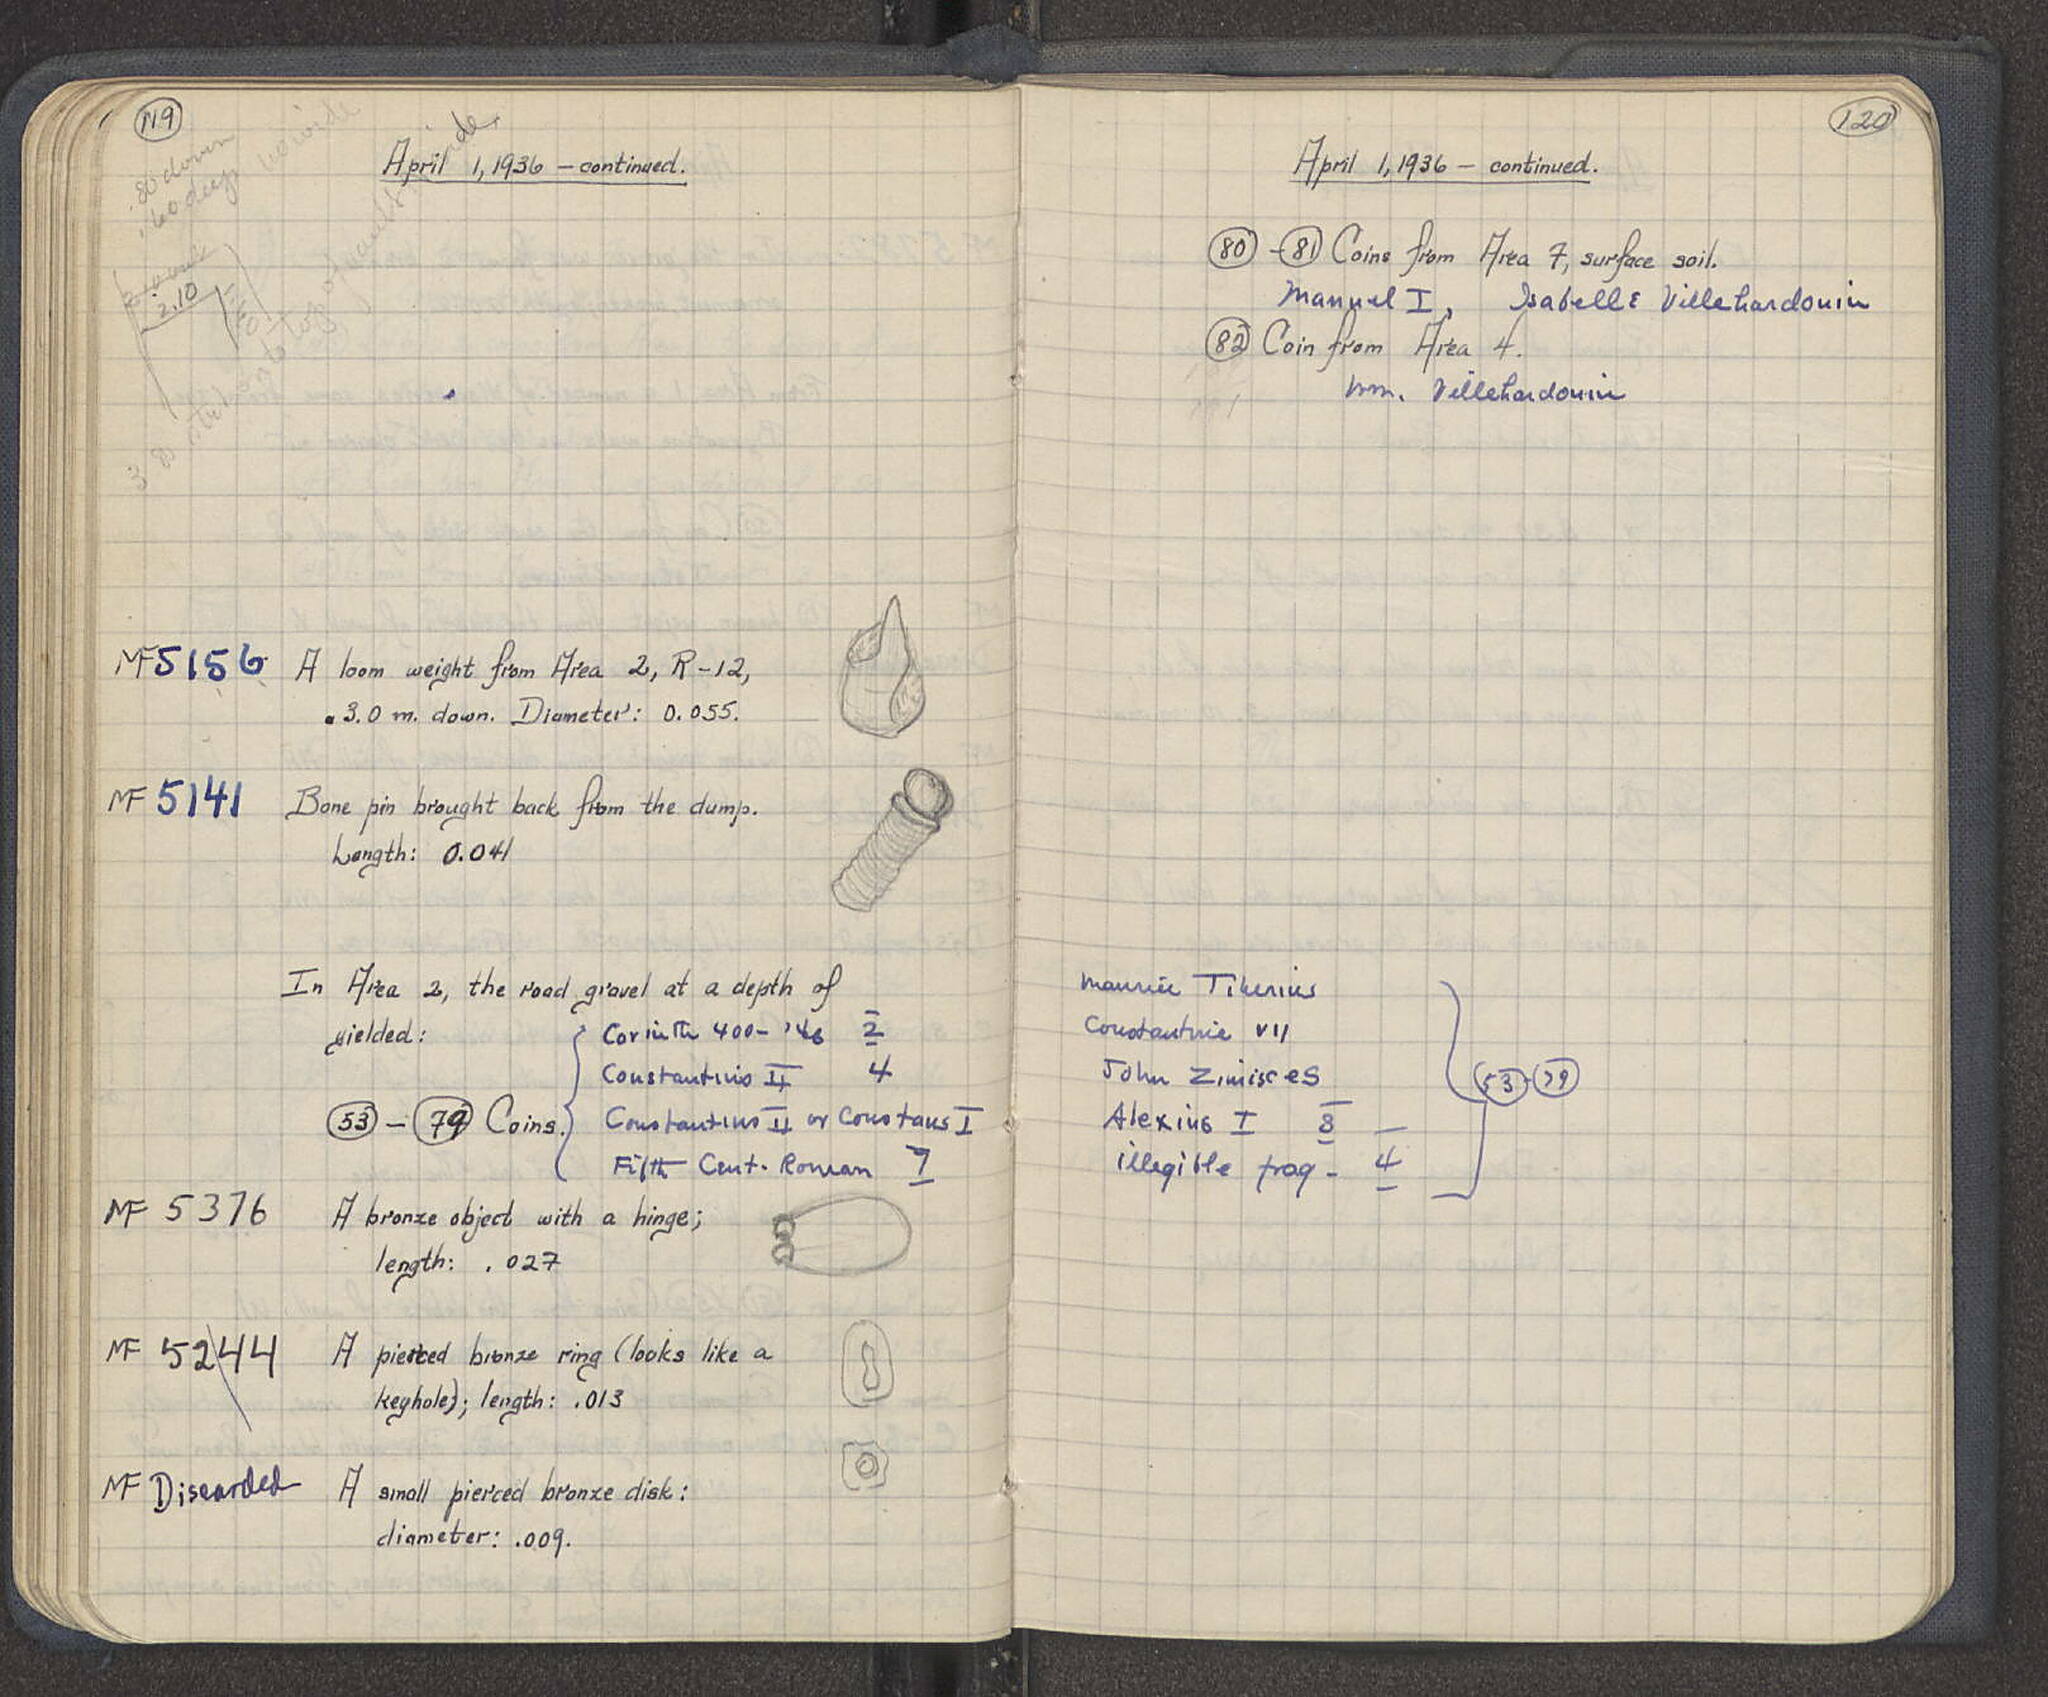 119
.80 down
.60 deep
2.10
April 1, 1936 – continued.
MF 5156 A loom weight from Area 2, R-12,
3.0 m. down. Diameter: 0.055.
MF 5141 Bone pin brought back from the dump.
Length: 0.041
In Area 2, the road gravel at a depth of
yielded:
Corinth 400-146 2
Constantius II 4
53 – 79 Coins.
Constantius II or Constans I
Fifth Cent. Roman 7
MF 5376 A bronze object with a hinge;
length: .027
MF 5244 A pierced bronze ring (looks like a
keyhole); length: .013
MF Discarded A small pierced bronze disk:
diameter: .009.
120
April 1, 1936 – continued.
80 – 81 Coins from Area 7, surface soil.
Manuel I, Isabelle Villehardouin
82 Coin from Area 4.
Wm. Villehardouin
Maurice Tiberius
Constantine VII
John Zimisces
53 - 79
Alexius I 8
illegible frag - 4